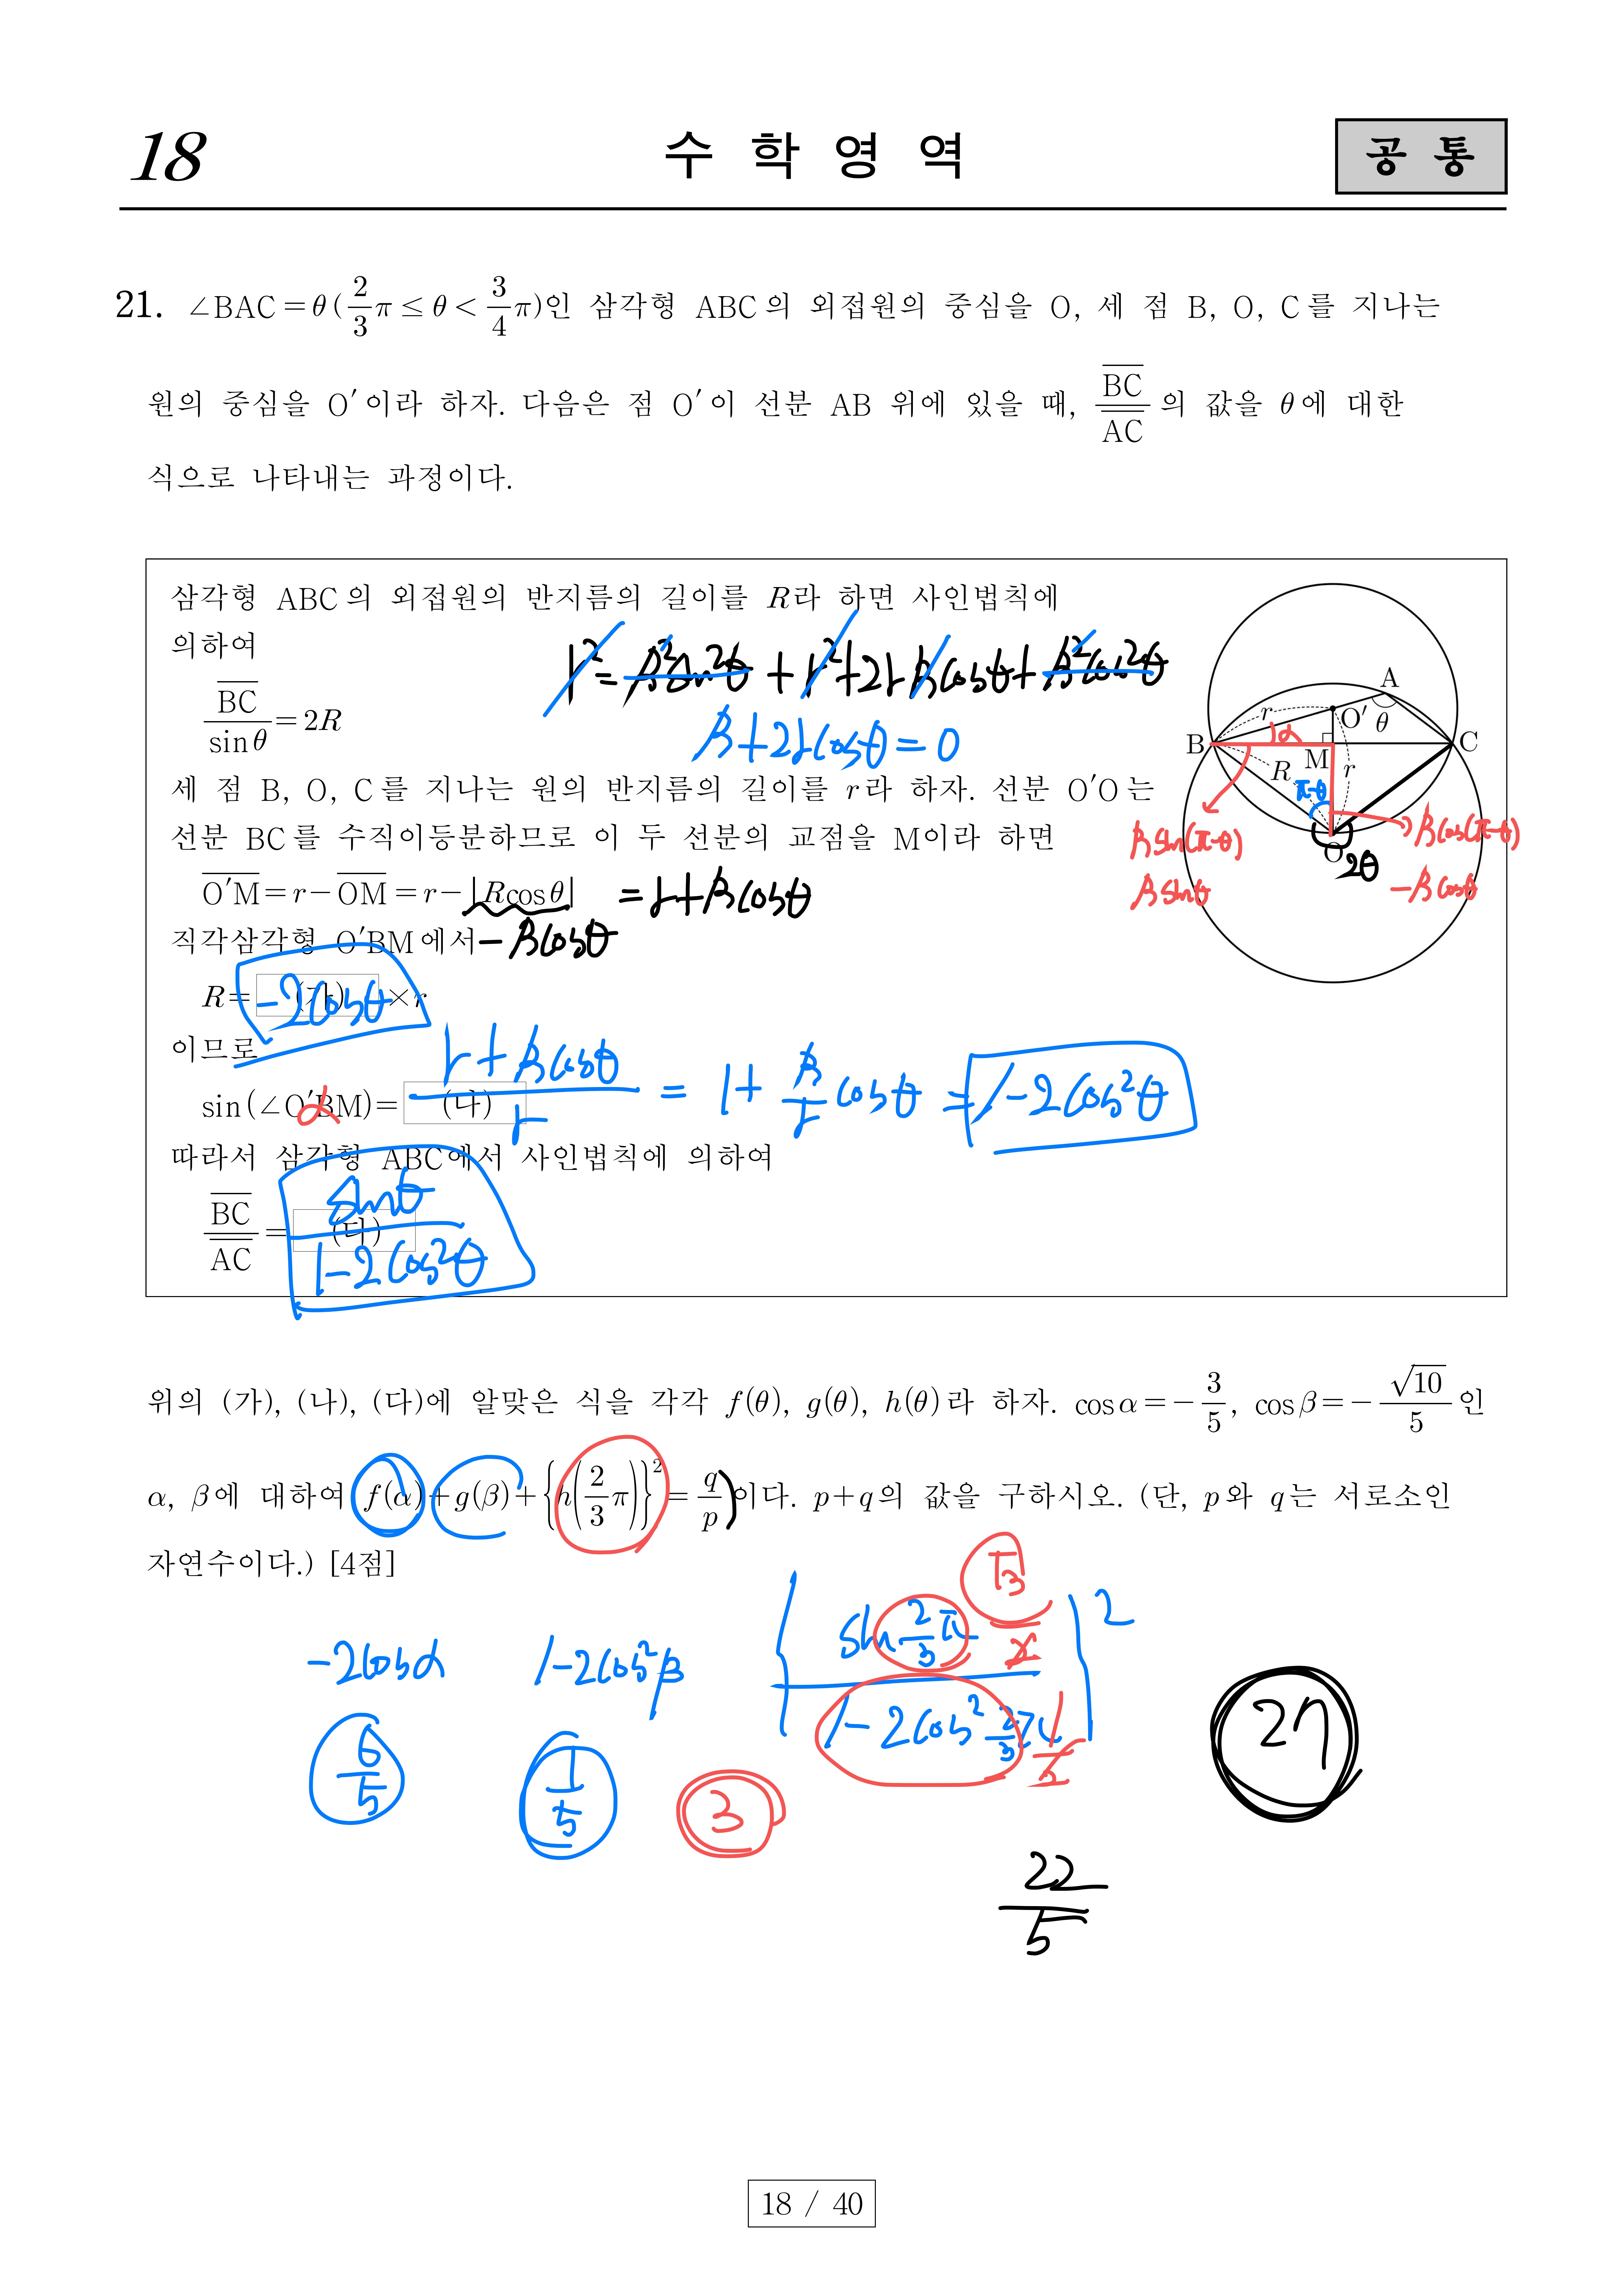 18 수 학 영 역 공 통
21. ∠BAC=θ(2/3 π ≤ θ < 3/4 π)인 삼각형 ABC의 외접원의 중심을 O, 세 점 B, O, C를 지나는
원의 중심을 O′이라 하자. 다음은 점 O′이 선분 AB 위에 있을 때, BC/AC 의 값을 θ에 대한
식으로 나타내는 과정이다.
삼각형 ABC의 외접원의 반지름의 길이를 R라 하면 사인법칙에
의하여
r² = R²sin²θ + r²+2rRcosθ+R²cos²θ
BC/sinθ = 2R
R+2rcosθ=0
세 점 B, O, C를 지나는 원의 반지름의 길이를 r라 하자. 선분 O′O는
선분 BC를 수직이등분하므로 이 두 선분의 교점을 M이라 하면
O′M = r − OM = r − |Rcosθ| = r+Rcosθ
직각삼각형 O′BM에서 -Rcosθ
R= (가) ×r
-2cosθ
이므로
sin(∠O′BM)= (다)
α
r+Rcosθ/r = 1+ R/r cosθ = 1-2cos²θ
따라서 삼각형 ABC에서 사인법칙에 의하여
BC/AC = (다)
sinθ/1-2cos²θ
A
O′
θ
r
α
B
M
C
R
r
π-θ
O
2θ
Rsin(π-θ)
Rsinθ
Rcos(π-θ)
-Rcosθ
위의 (가), (나), (다)에 알맞은 식을 각각 f(θ), g(θ), h(θ)라 하자. cosα=−3/5, cosβ=−√10/5 인
α, β에 대하여 f(α)+g(β)+{h(2/3 π)}² = q/p 이다. p+q의 값을 구하시오. (단, p와 q는 서로소인
자연수이다.) [4점]
-2cosα 1-2cos²β {sin 2/3 π / 1-2cos² 2/3 π}²
√3/2
1/2
6/5 1/5 3
27
22/5
18 / 40